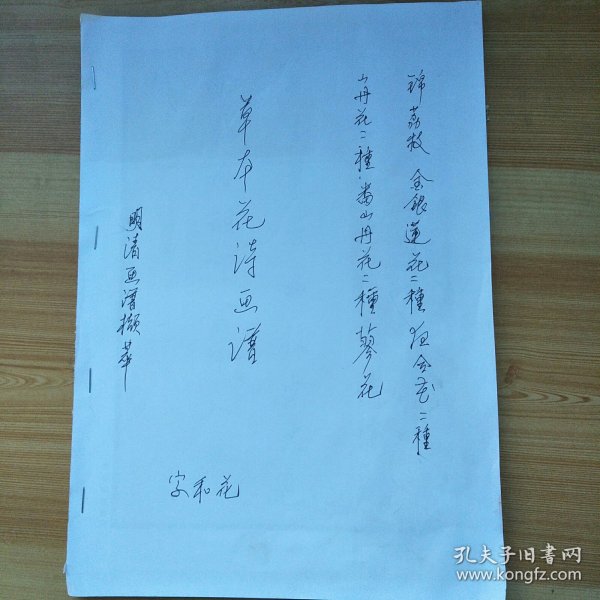 錦荔枝 金銀蓮花二種 夜合花二種
山丹花二種 番山丹花二種 蓼花
草本花诗画譜
明清画谱撷萃
字和花
孔夫子旧书网
www.kongfz.com